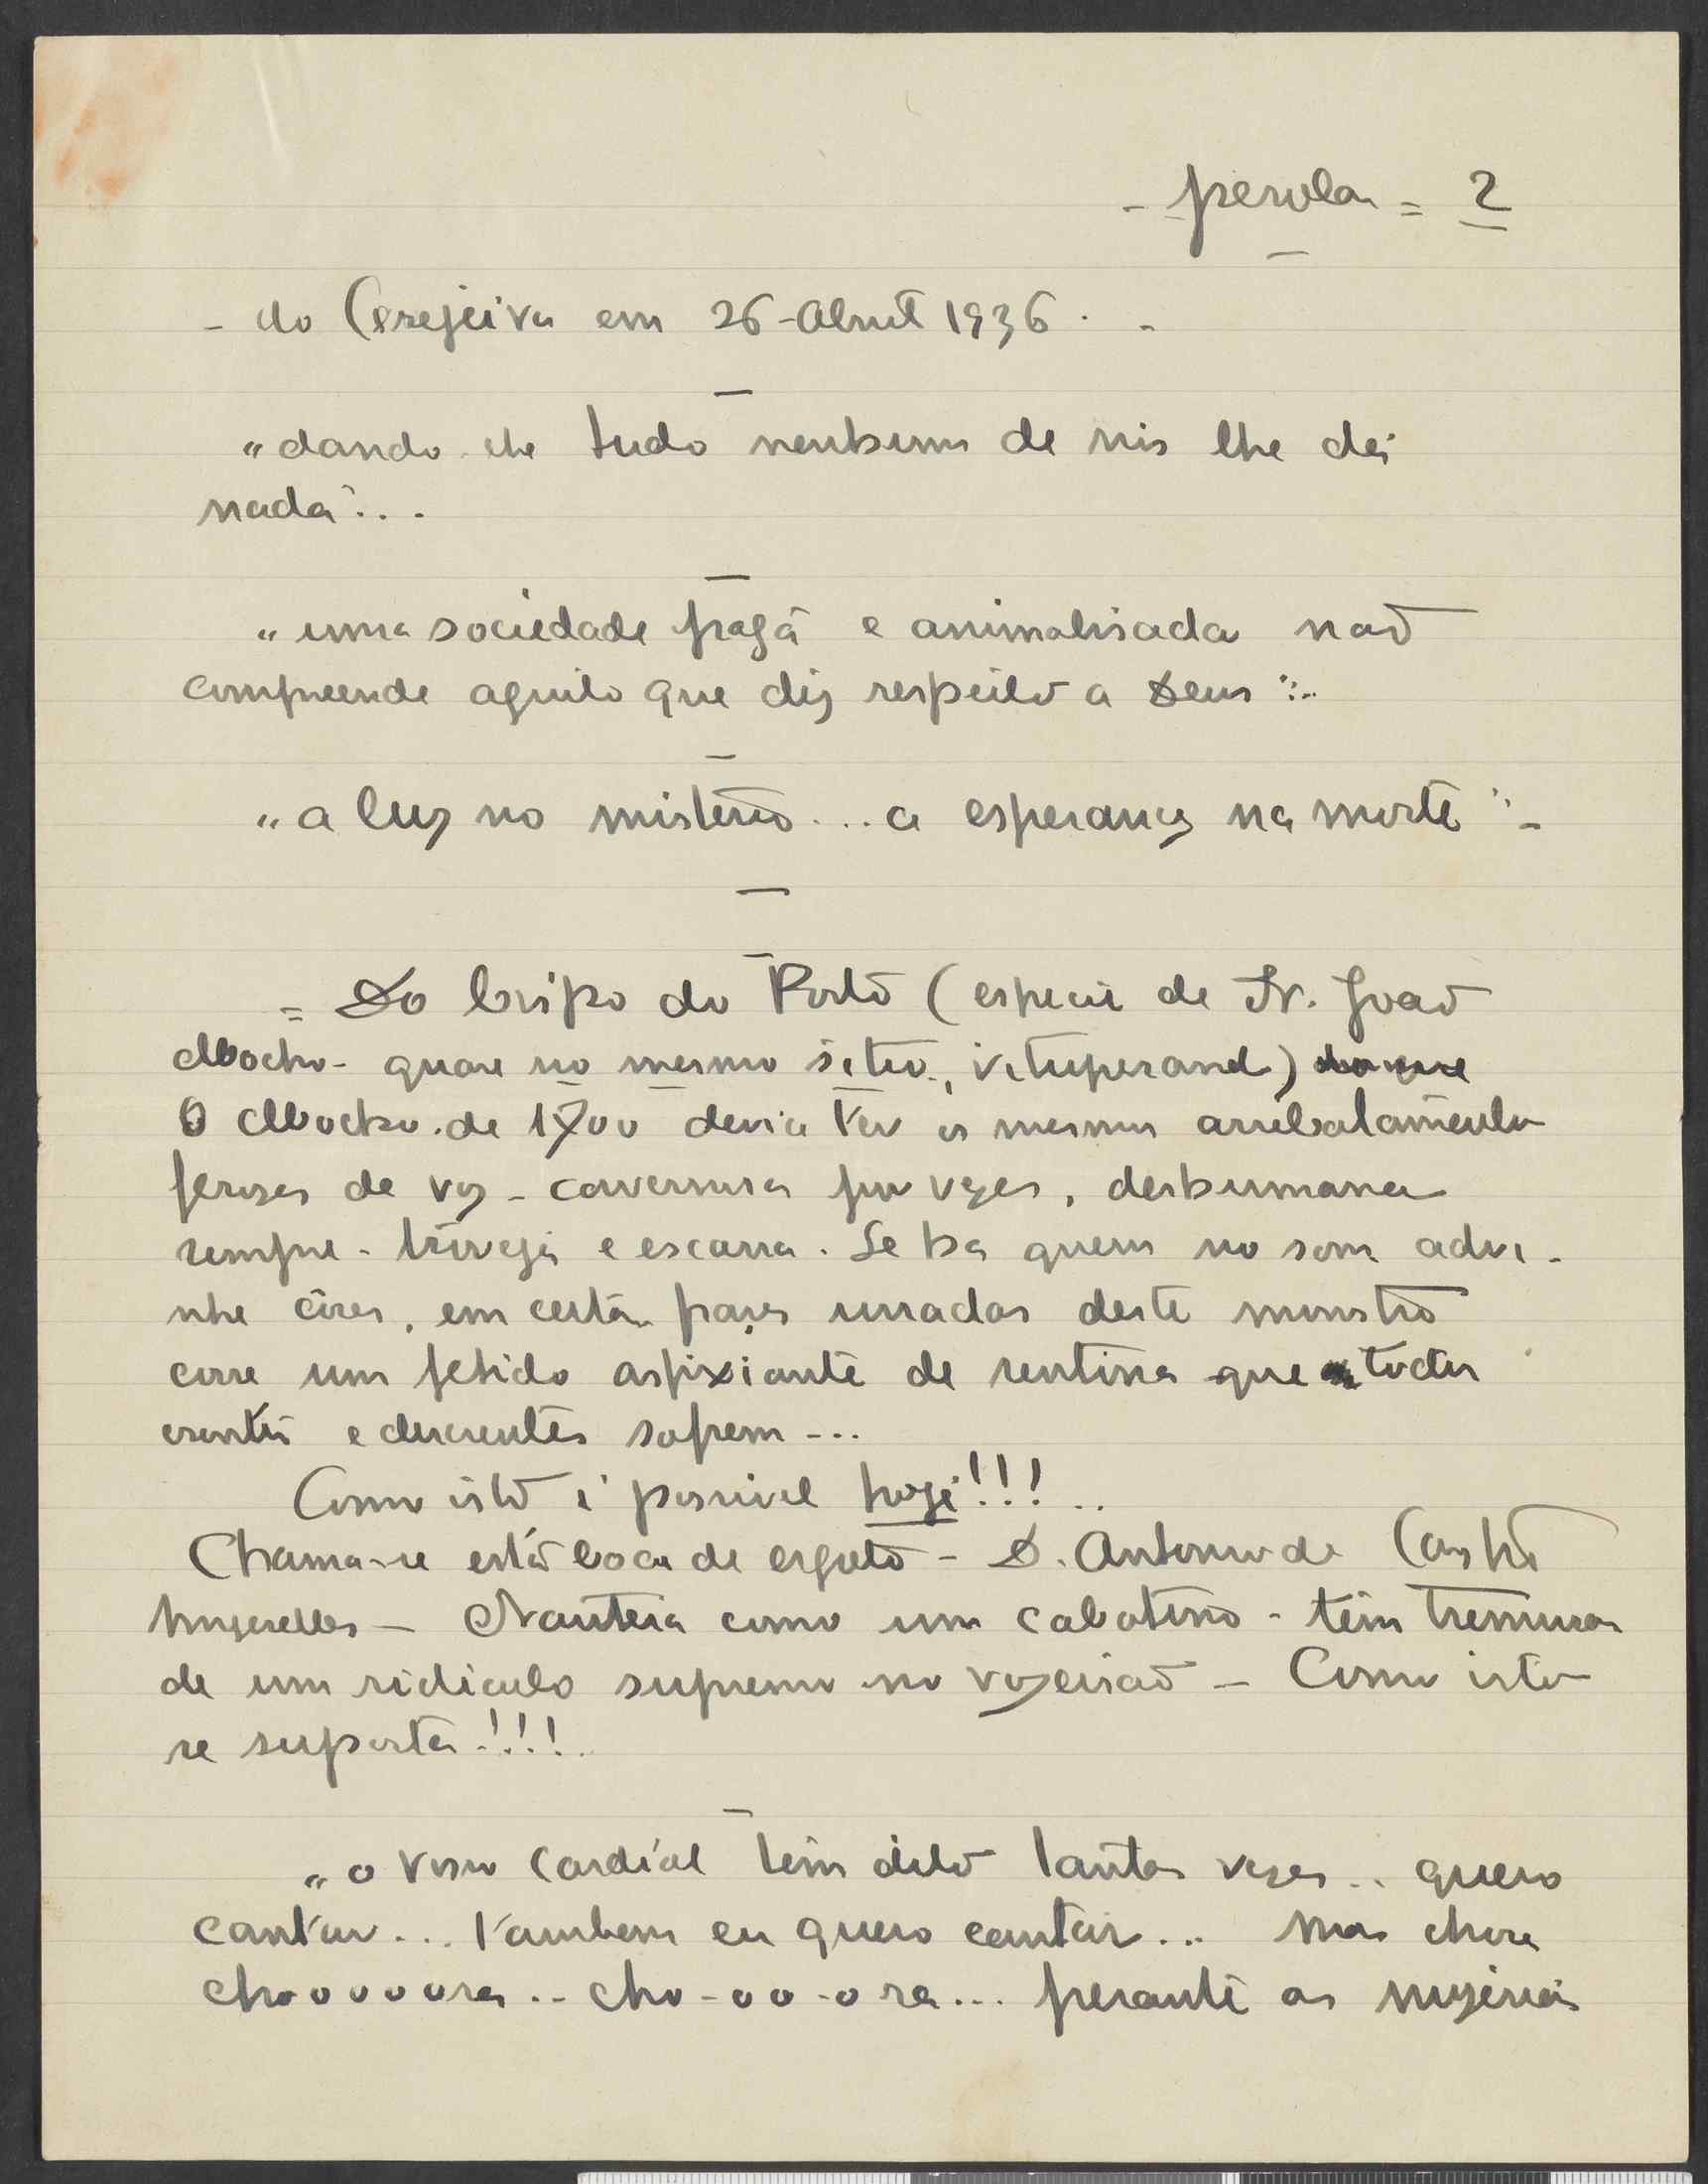 - perolas = 2
- do Cerejeira em 26-Abril 1936 . -
"dando-lhe tudo nenhum de nós lhe dá
nada"...
"uma sociedade pagã e animalisada não
compreende aquilo que diz respeito a Deus"...
"a luz no misterio... a esperança na morte" -
= Do bispo do Porto (especie de Fr. João
Mocho - quase no mesmo sitio, vituperand)
O Mocho de 1700 devia ter os mesmos arrebatamentos
ferozes de voz - cavernosa por vezes, deshumana
sempre - troveja e escarra. Se ha quem no som advi-
nhe côres, em certas urradas deste monstro
corre um fetido asfixiante de sentina que todos
crentes e descrentes sofrem ...
Como isto é possivel hoje!!!..
Chama-se esta boca de esgoto - D. Antonio de Castro
Meyrelles - Nauseia como um cabotino - tem tremuras
de um ridiculo supremo no vozeirão - Como isto
se suporta!!!!
"o vosso Cardial tem dito tantas vezes .. quero
cantar... Tambem eu quero cantar... Mas chora
chooooora .. cho-oo-ora... perante as miserias